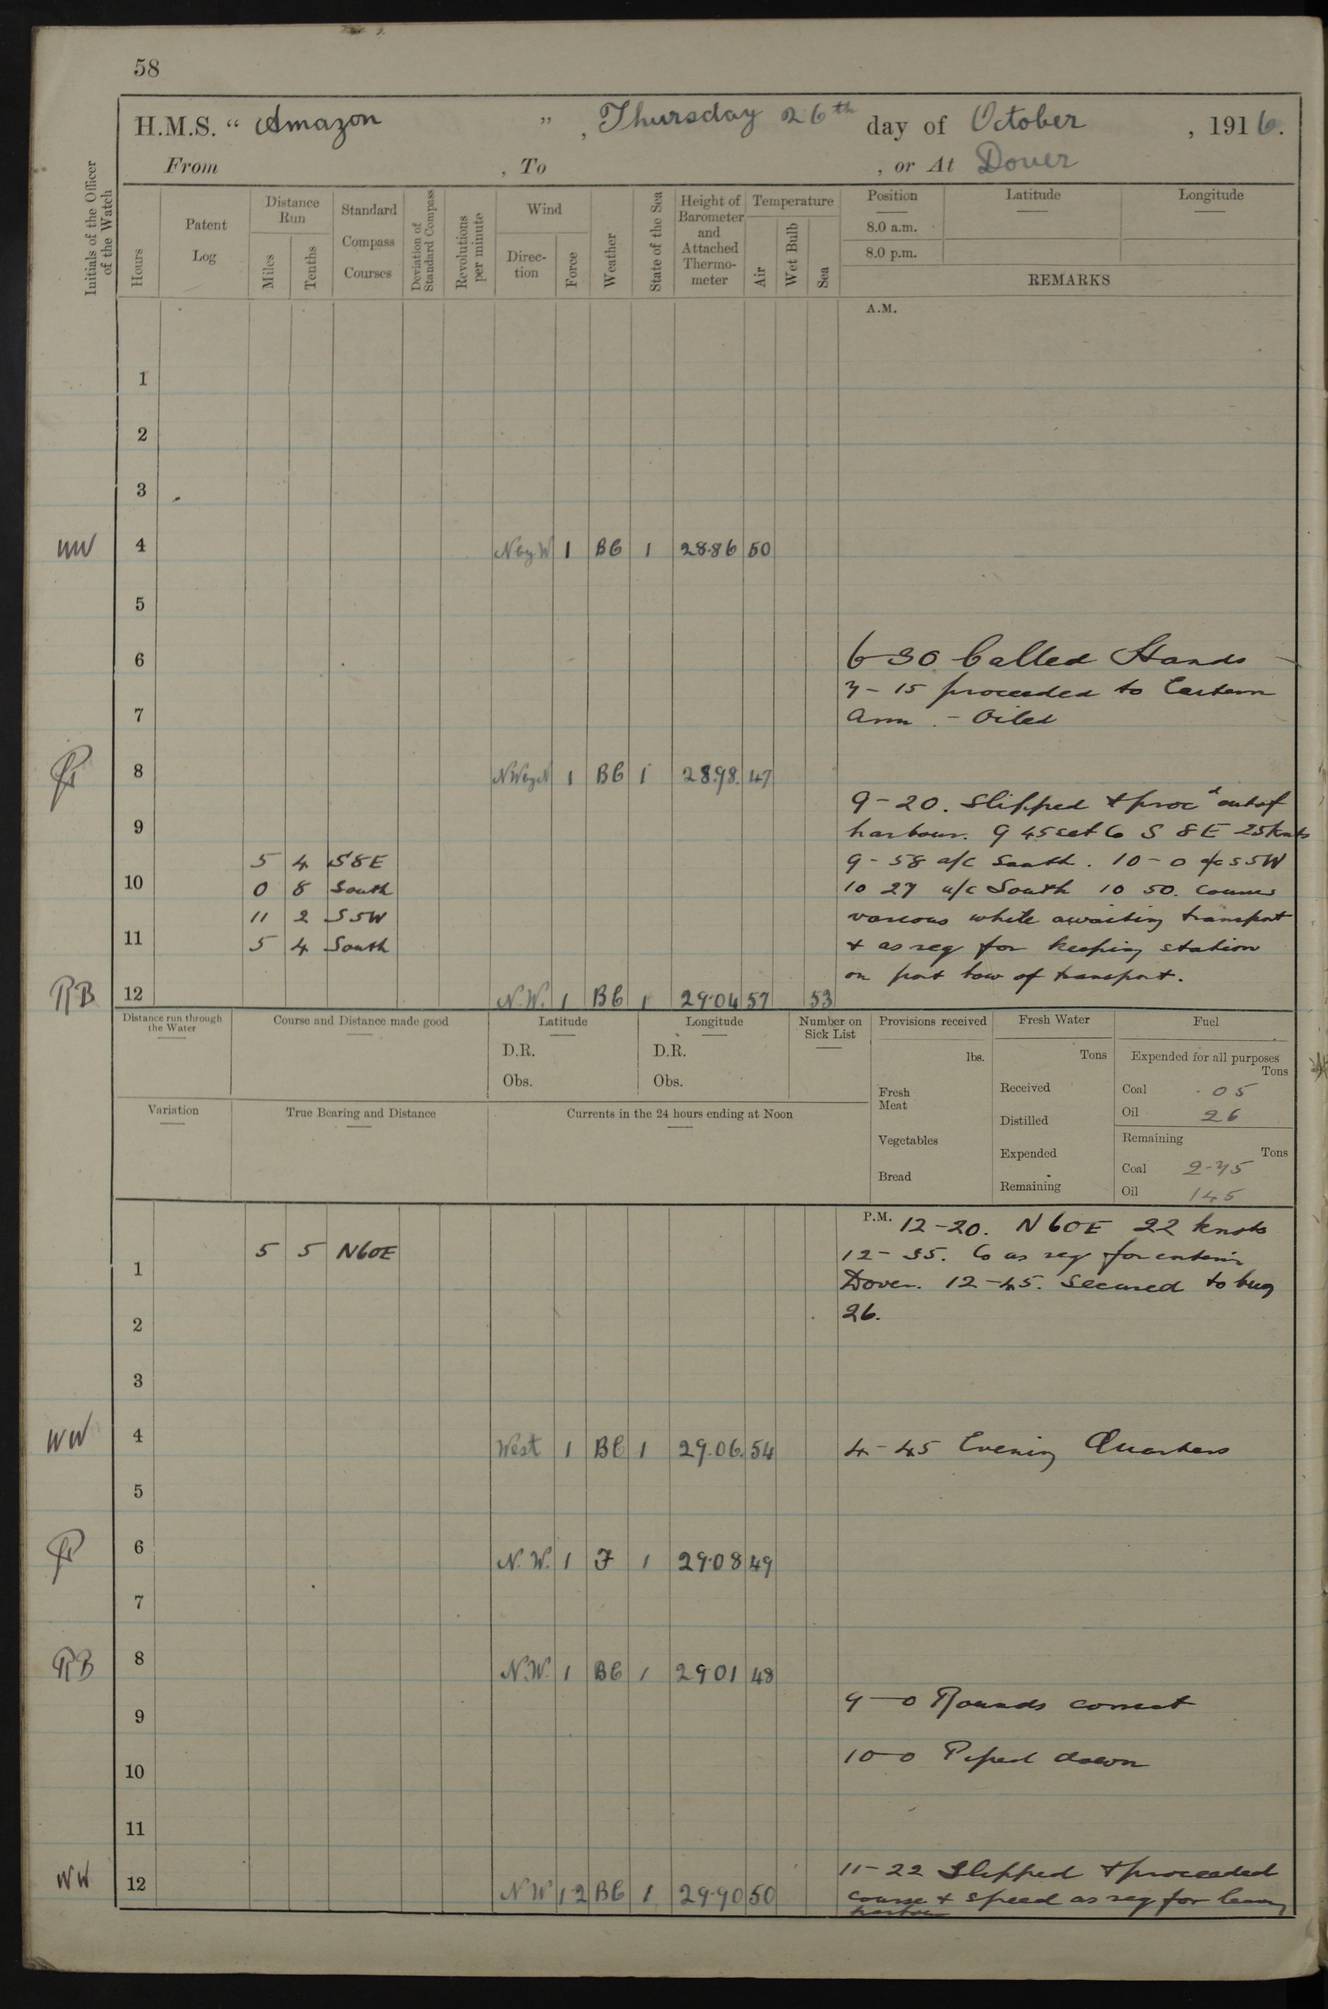 58
H.M.S. “ Amazon ” , Thursday 26th day of October , 1916.
From , To , or At Dover
Initials of the Officer of the Watch
Hours
Patent Log
Distance Run
Miles
Tenths
Standard Compass Courses
Deviation of Standard Compass
Revolutions per minute
Wind
Direction
Force
Weather
State of the Sea
Height of Barometer and Attached Thermometer
Temperature
Air
Wet Bulb
Sea
Position
8.0 a.m.
8.0 p.m.
Latitude
Longitude
REMARKS
A.M.
1
2
3
WW 4 N by W 1 BC 1 28.86 50
5
6 6-30 Called Hands
7-15 proceeded to Eastern
7 Arm. - Oiled
8 NW by N 1 BC 1 28.98. 47
9-20. Slipped & proc'd out of
9 harbour. 9 45 set Co S 8E 25 Knots
5 4 S8E 9-58 a/c South. 10-0 a/c S5W
10 0 8 South 10 27 a/c South 10 50. Courses
11 2 S5W various while awaiting transport
11 5 4 South & as req for keeping station
on port bow of transport.
RB 12 N.W. 1 BC 1 29.04 57 53
Distance run through the Water
Course and Distance made good
Latitude
D.R.
Obs.
Longitude
D.R.
Obs.
Number on Sick List
Provisions received
lbs.
Fresh Meat
Vegetables
Bread
Fresh Water
Tons
Received
Distilled
Expended
Remaining
Fuel
Expended for all purposes
Tons
Coal .05
Oil 26
Remaining
Tons
Coal 2.75
Oil 145
Variation
True Bearing and Distance
Currents in the 24 hours ending at Noon
P.M. 12-20. N60E 22 knots
5 5 N60E 12-35. Co as req for entering
1 Dover. 12-45. Secured to buoy
2 26.
3
WW 4 West 1 BC 1 29.06. 54 4-45 Evening Quarters
5
6 N.W. 1 F 1 29.08 49
7
RB 8 N.W. 1 BC 1 2901 48
9 9-0 Rounds correct
10 10-0 Piped down
11
11-22 Slipped & proceeded
WW 12 NW 1 2 BC 1 29.90 50 course & speed as req for leaving
harbour